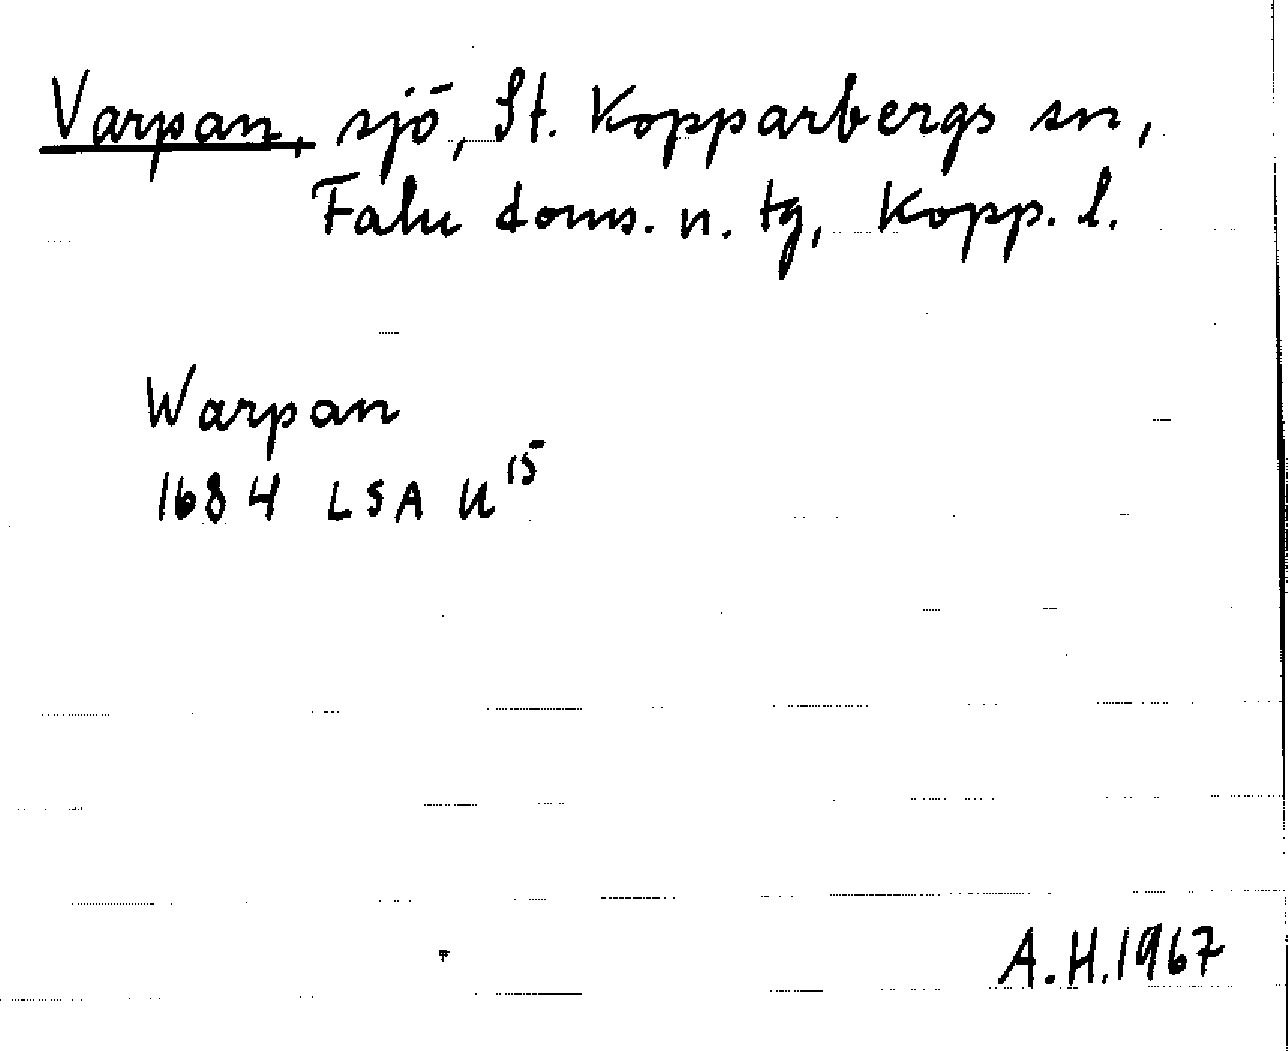 Varpan, sjö, St. Kopparbergs sn,
Falu doms. n. tg, Kopp. l.
Warpan
1684 LSA U15
A.H.1967